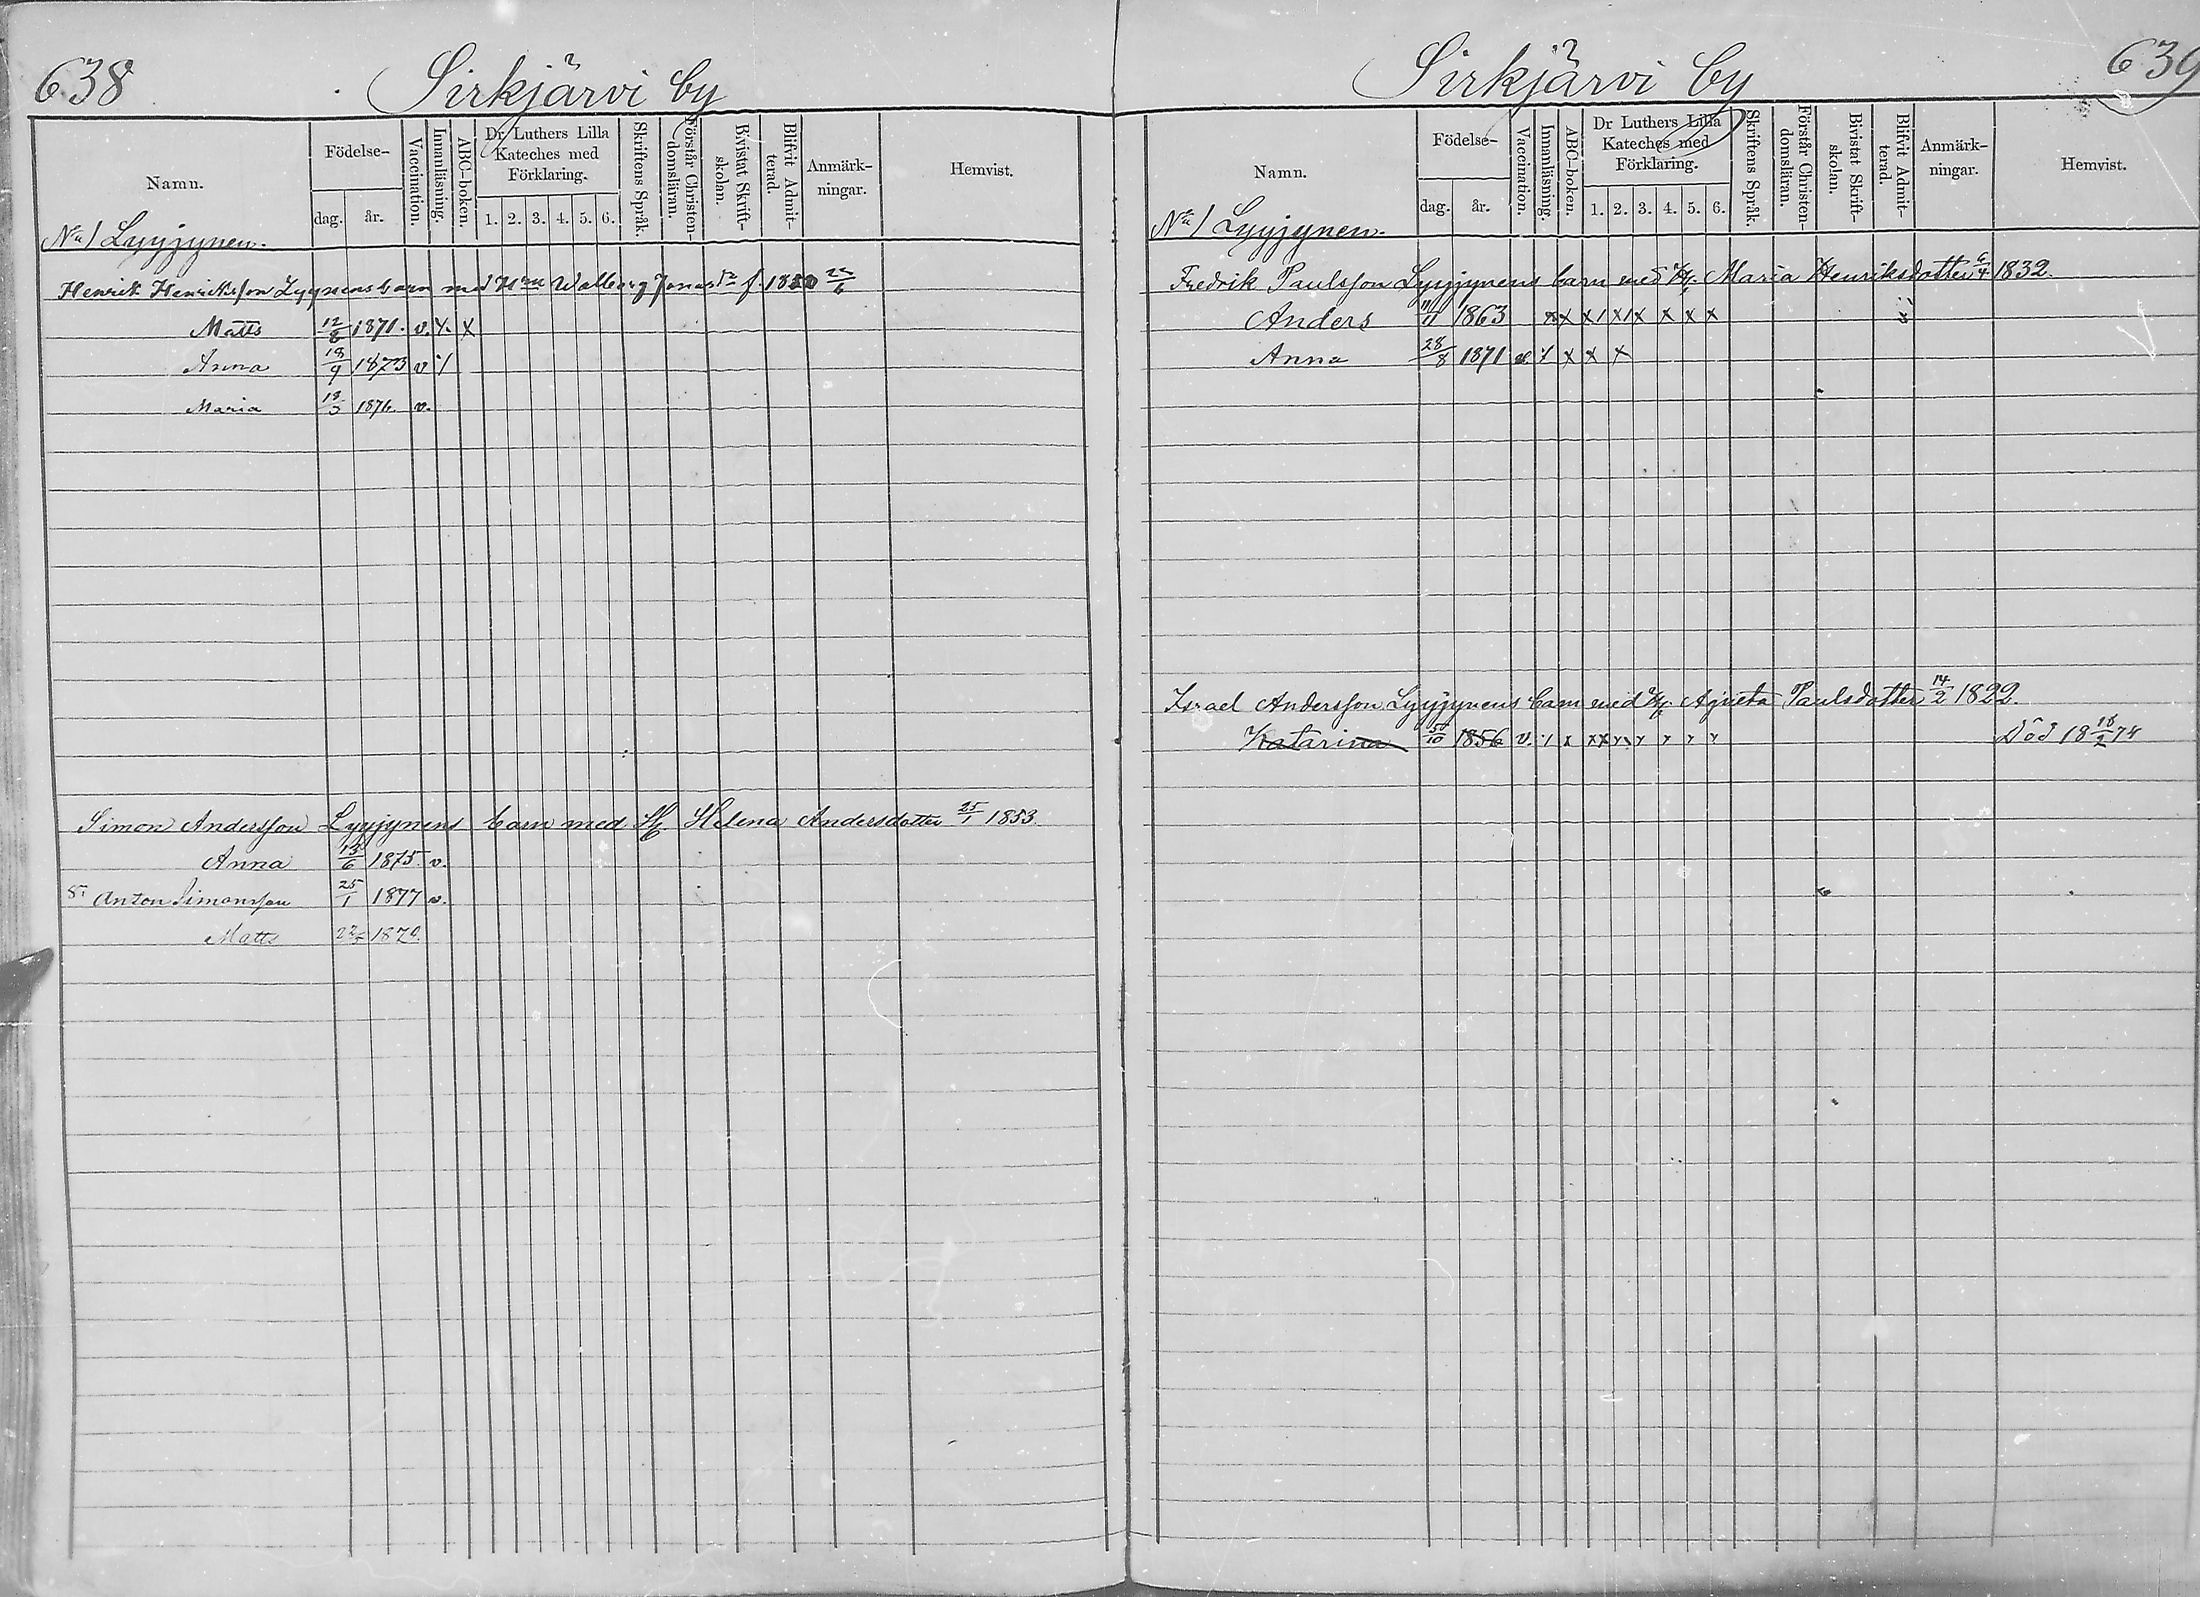 638
Sirkjärvi by
Namn.
Födelse-
dag.
år.
Vaccination.
Innanläsning.
ABC-boken.
Dr Luthers Lilla
Kateches med
Förklaring.
1. 2. 3. 4. 5. 6.
Skriftens Språk.
Förstår Christen-
domsläran.
Bivistat Skrift-
skolan.
Blifvit Admit-
terad.
Anmärk-
ningar.
Hemvist.
No 1 Lyyjynen.
Henrik Henriksson Lyynens barn med Hum Walborg Jonasdr f.
Matts 12/8 1871. v. x. x
Anna 18/9 1873 v
Maria 1876. v.
Simon Andersson Lyyjynens barn med H. Helena Andersdotter 25/1 1853
Anna 13/6 1875 v.
Sn Anton Simonsson 25/1 1877 v.
Matts
639
Sirkjärvi by
Namn.
Födelse-
dag.
år.
Vaccination.
Innanläsning.
ABC-boken.
Dr Luthers Lilla
Kateches med
Förklaring.
1. 2. 3. 4. 5. 6.
Skriftens Språk.
Förstår Christen-
domsläran.
Bivistat Skrift-
skolan.
Blifvit Admit-
terad.
Anmärk-
ningar.
Hemvist.
No 1 Lyyjynen.
Fredrik Paulsson Lyyjynens barn med H. Maria Henriksdotter 6/4 1832.
Anders 11/11 1863 x x x x x x x x
Anna 28/8 1871 v. x x x
Israel Andersson Lyyjynens barn med H. Agneta Paulsdotter 14/2 1822.
Katarina 1856 v. Död 18 18/2 74